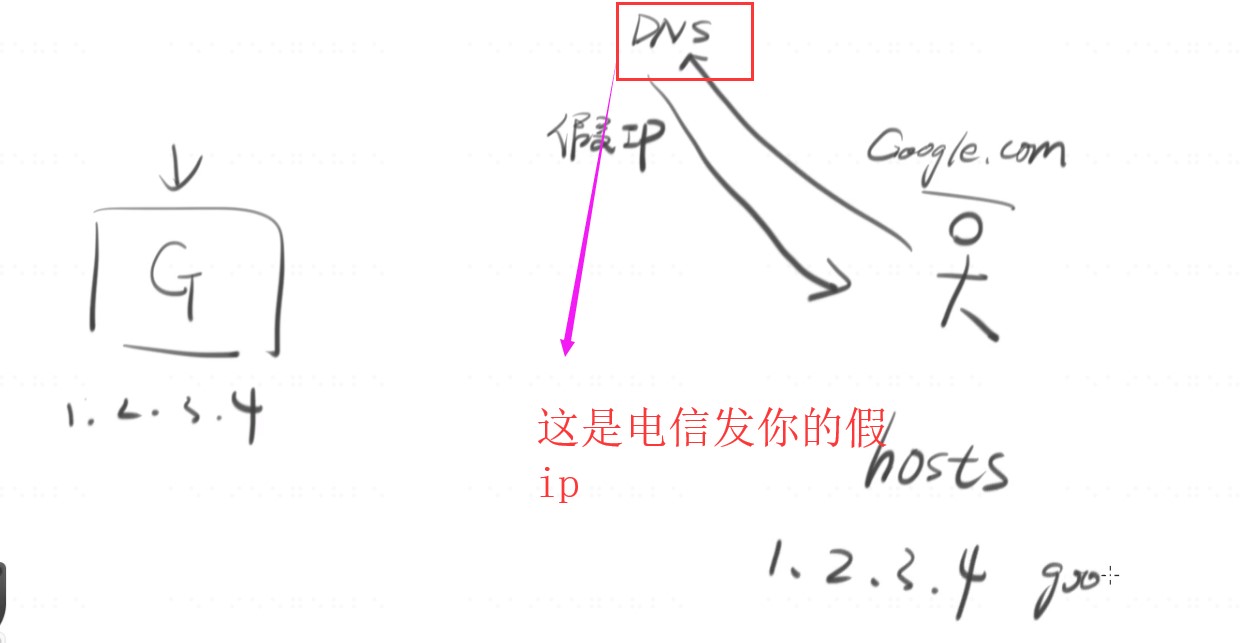 DNS
假IP
Google.com
G
1.2.3.4
这是电信发你的假
ip
hosts
1.2.3.4 goo